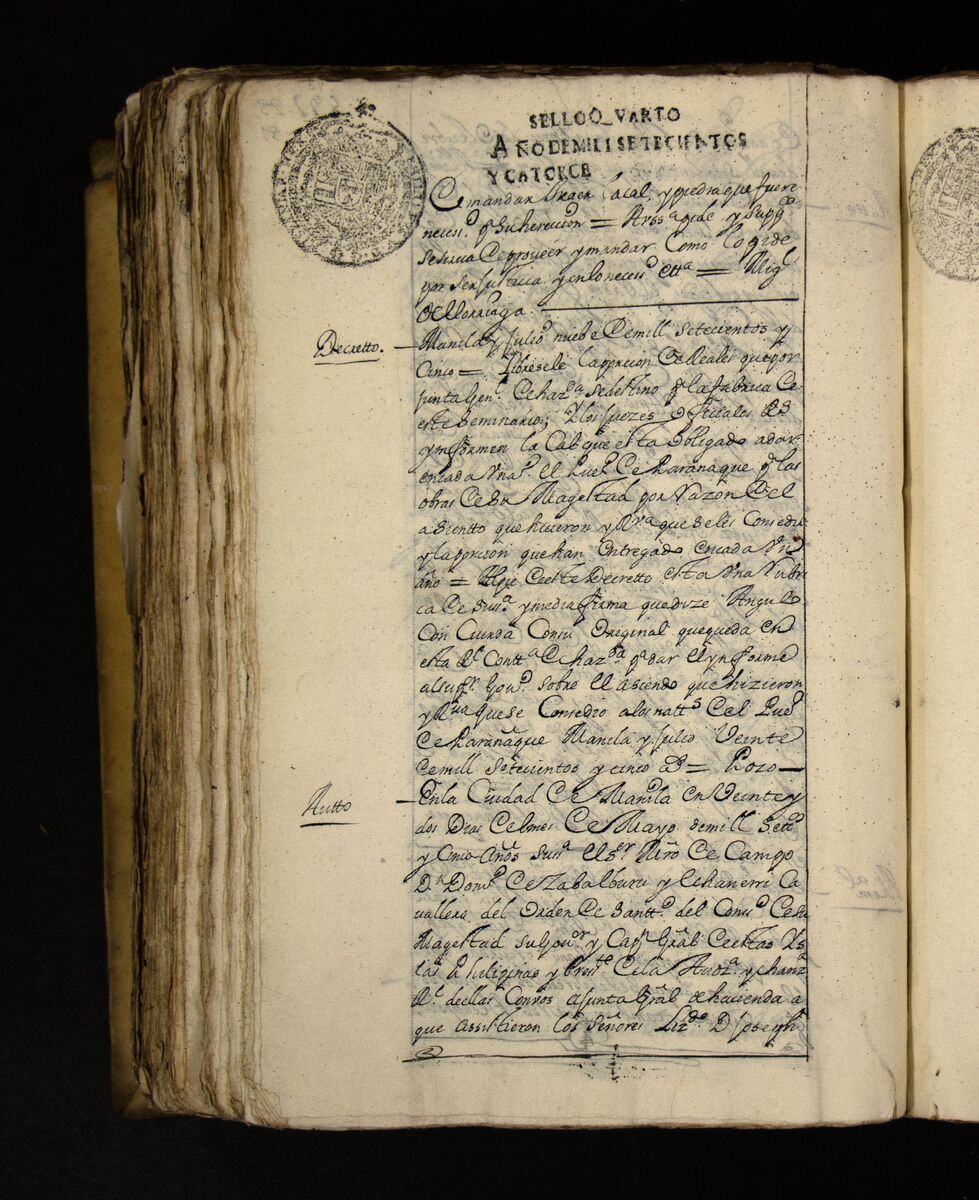 SELLO Q_VARTO
AÑO DE MIL I SETECIENTOS
Y CATORCE
Cemandar traer la cal, y piedra que fuere
necess.ª p.ª su herecion = A Vss.ª pide y supp.co
se sirva Ce proveer y mandar Como lo pide
por ser justicia y en lo neces.º etta = Mig.l
de Elorriaga.
Decretto.
Manila y Julio nueve Cemill Setecientos y
Cinco = Libresele la pprcion de Reales que por
junta Gen.l Ce haz.da se destino p.ª la fabrica Ce
este Seminario; y los Juezes officiales R.s
ynformen la Cal que esta obligado a dar
en cada un a.º el Pue.º Ce Parañaque p.ª las
obras Ce Su Magestad por razon Del
asientto que hicieron y R.va que se les Consedio
y la pprcion que han Entregado en cada Un
año = Al pie Ceeste Decretto esta Una Rubri
ca Ce su s.ª y media firma que dize Angulo
Con Cuerda Consu Original que queda en
esta R.l Contt.ª Ce haz.da p.ª dar El ynforme
al sup.or Gov.no sobre El asiendo que hizieron
y R.va que se Consedio a los natt.s Cel Pue.º
Ce Parañaque Manila y Julio Veinte
Cemill Setecientos y cinco a.s = Pozo
Autto
En la Ciudad Ce Manila en Veinte y
dos Dias Cel mes Ce Mayo demill Sett.s
y Cinco Años su s.ª El s.r Mro Ce Campo
D.n Dom.º Ce Zabalburu y Echaverri Ca
vallero del Orden De Santt.º del Cons.º Cesu
Magestad su Gov.or y Cap.n Gral Ceestas Ys
las Philipinas y Press.te Cela Aud.ª y chanz
R.l de ellas Convoco a Junta Gral de hacienda a
que assistieron los Señores Liz.do D Joseph